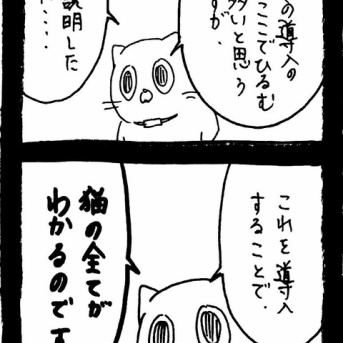 の導入の
ここでひるむ
多いと思う
すが、
説明した
これを導入
することで、
猫の全てが
わかるのです